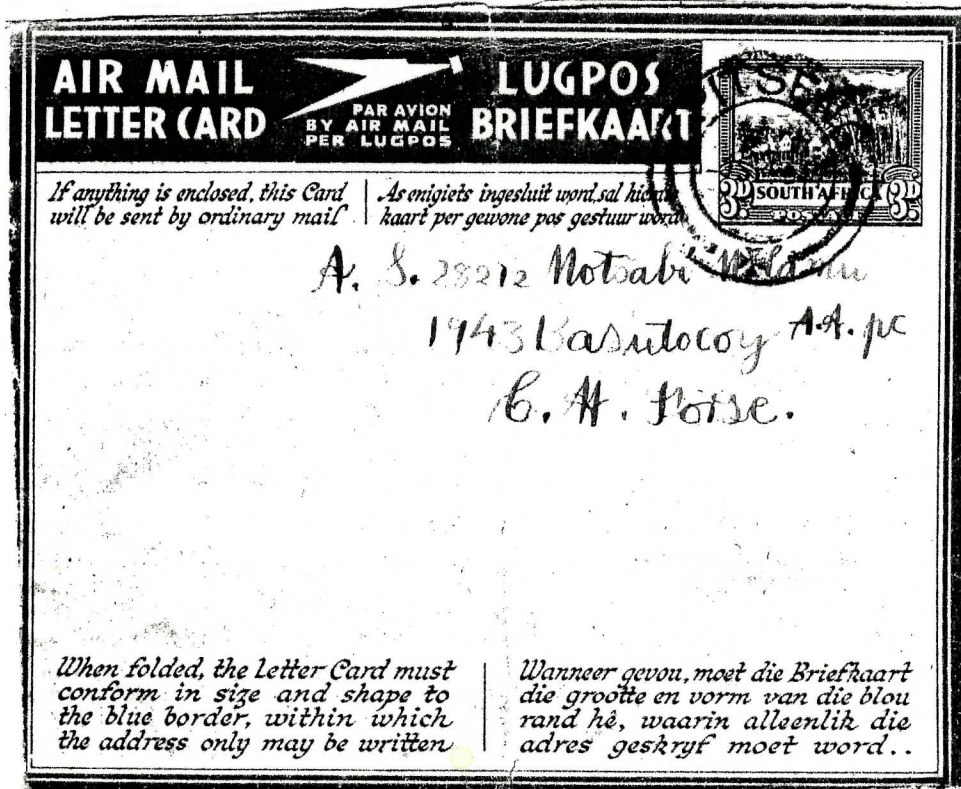 AIR MAIL
LETTER CARD
PAR AVION
BY AIR MAIL
PER LUGPOS
LUGPOS
BRIEFKAART
If anything is enclosed, this Card
will be sent by ordinary mail
As enigiets ingesluit word, sal hierdie
kaart per gewone pos gestuur word
3D SOUTH AFRICA 3D
POSTAGE
A. S. 28212 Notsabi
1943 Basutocoy A.A. pc
C. H. Forse.
When folded, the Letter Card must
conform in size and shape to
the blue border, within which
the address only may be written
Wanneer gevou, moet die Briefkaart
die grootte en vorm van die blou
rand hê, waarin alleenlik die
adres geskryf moet word..